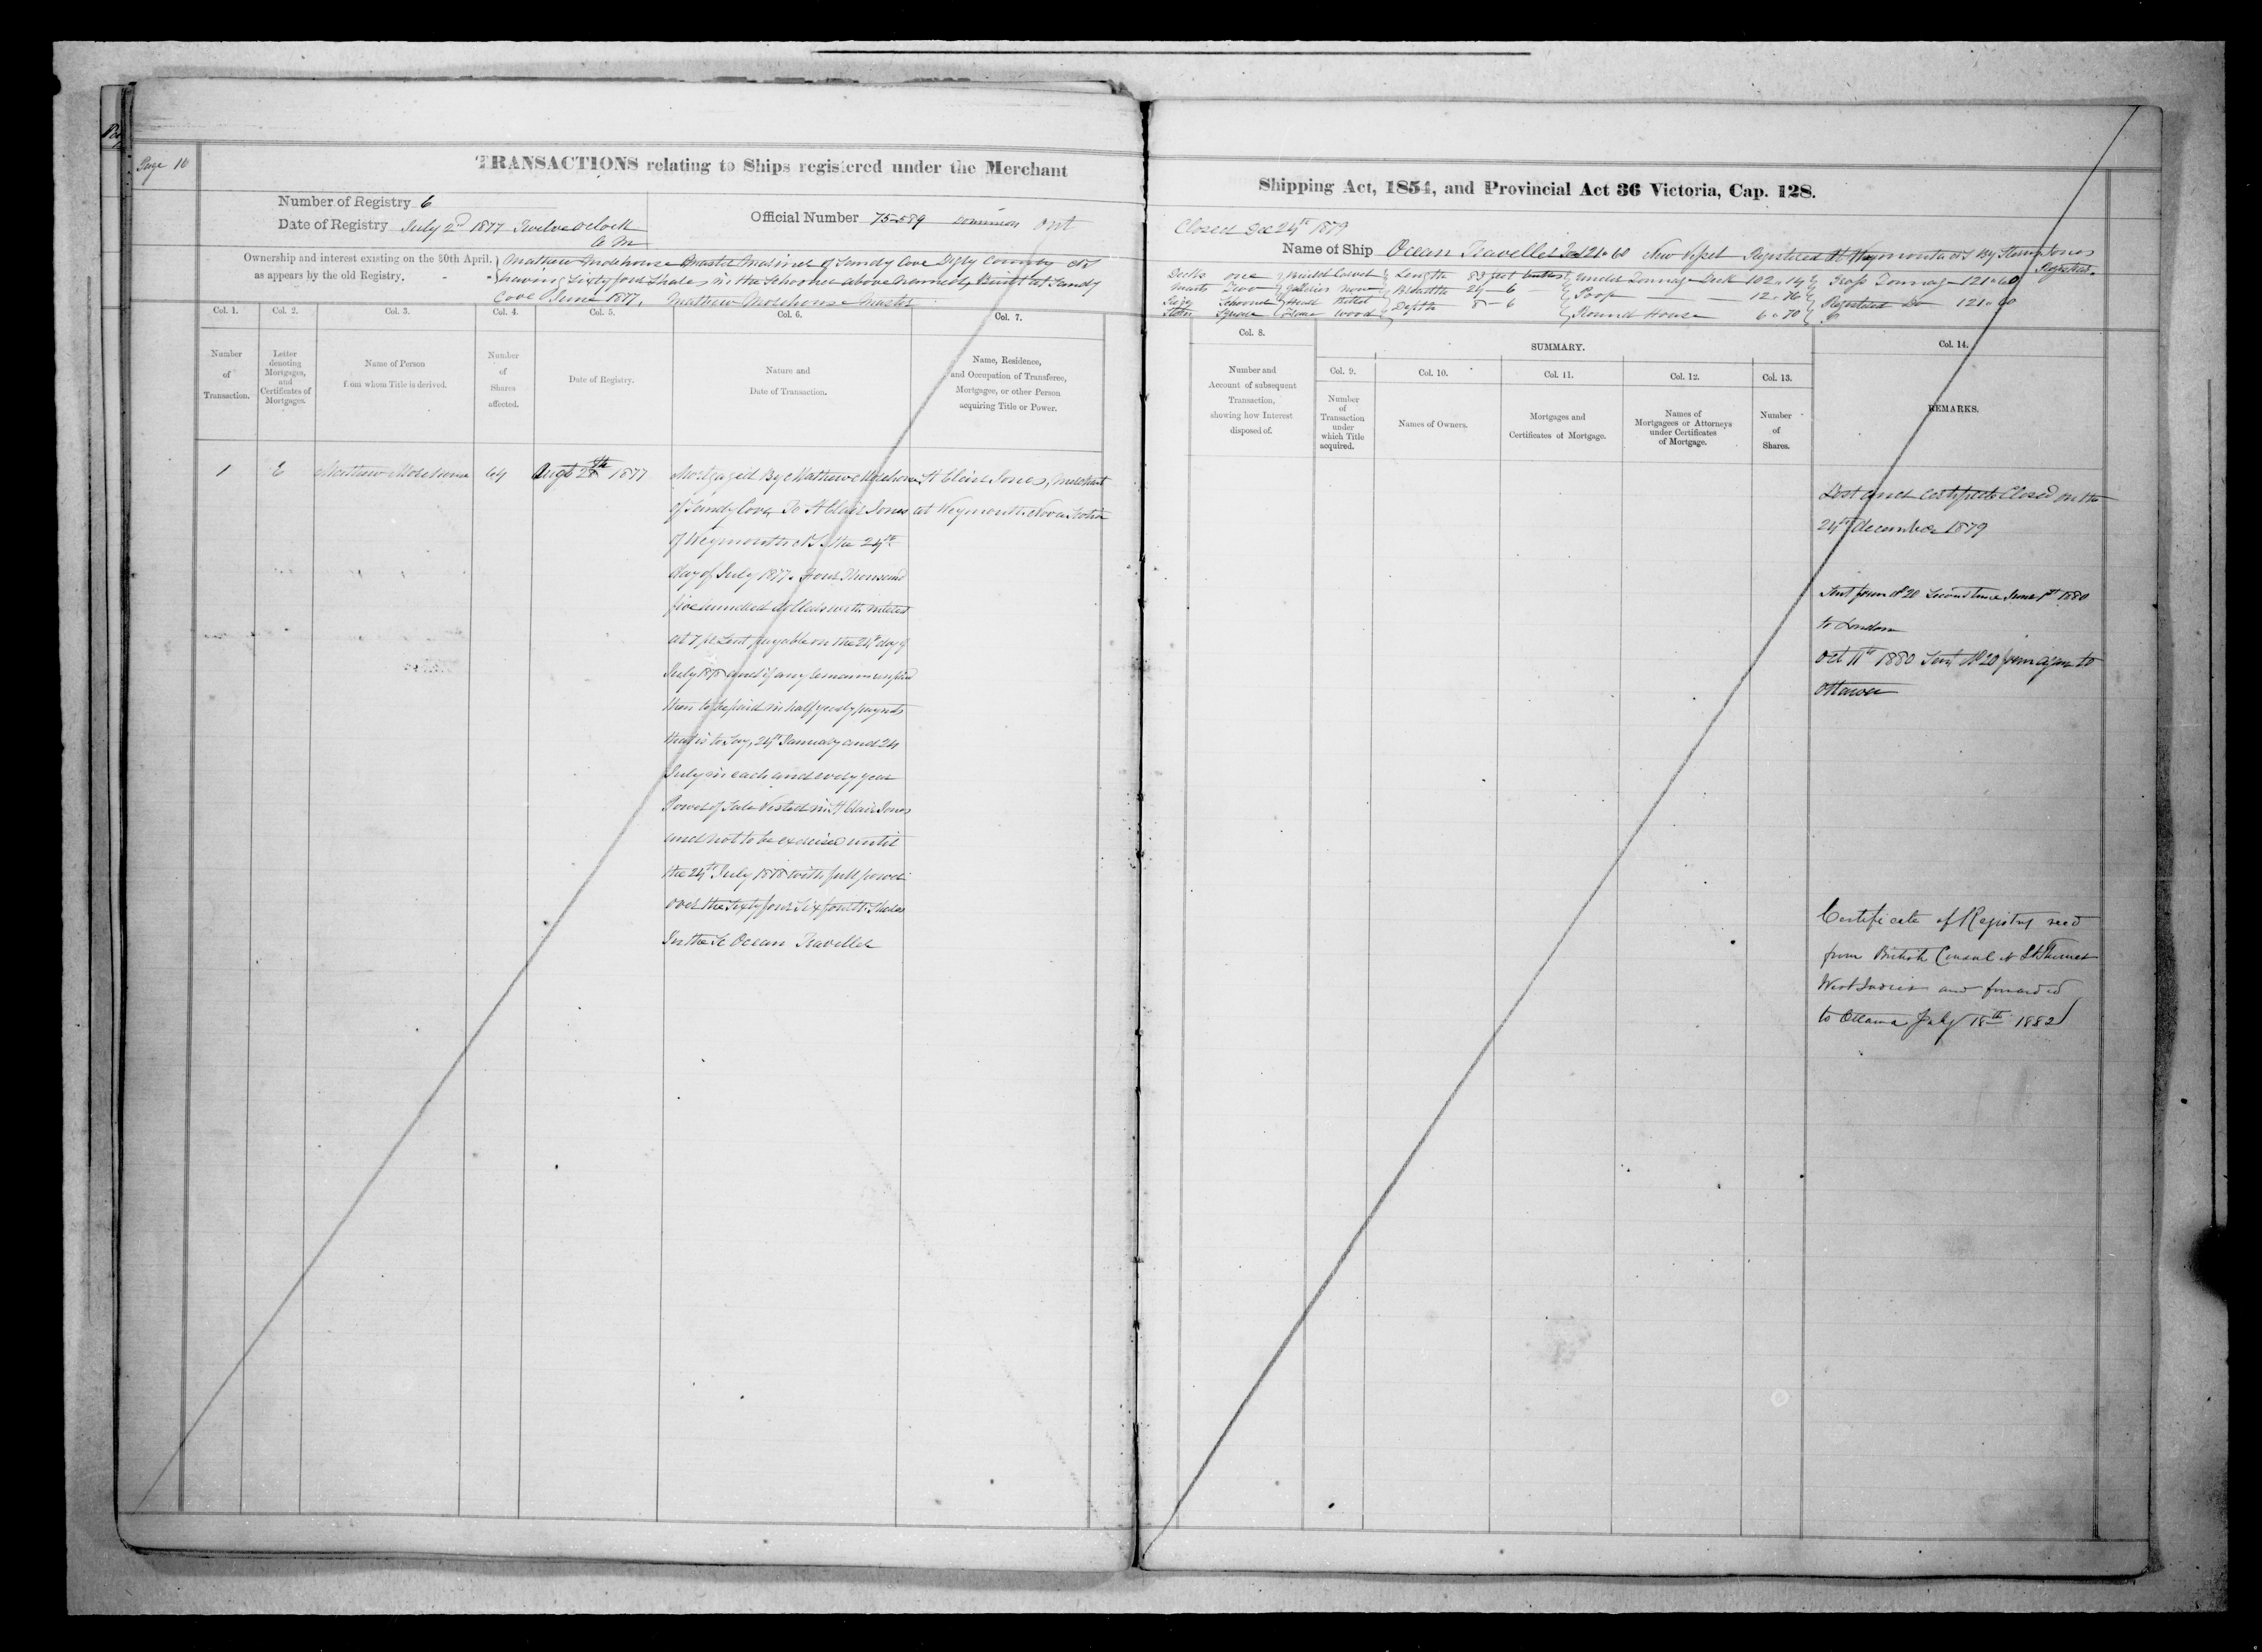 Page 16
TRANSACTIONS relating to Ships registered under the Merchant
Number of Registry 6
Date of Registry July 2nd 1877 Twelve oclock
Official Number 75589 Dominion
Ownership and interest existing on the 30th April,
as appears by the old Registry.
Mathew Morehouse Master Mariner of Sandy Cove Digby County NS
having Sixty four Shares in the Schooner above named, Built at Sandy
Cove June 1877. Mathew Morehouse Master
Col. 1.
Col. 2.
Col. 3.
Col. 4.
Col. 5.
Col. 6.
Col. 7.
Number
of
Transaction.
Letter
denoting
Mortgages,
and
Certificates of
Mortgages.
Name of Person
from whom Title is derived.
Number
of
Shares
affected.
Date of Registry.
Nature and
Date of Transaction.
Name, Residence,
and Occupation of Transferee,
Mortgagee, or other Person
acquiring Title or Power.
1
Mathew Morehouse
64
Augt 1877
Mortgaged By Mathew Morehouse
of Sandy Cove To St Clair Jones
of Weymouth NS the 24th
day of July 1877. Four Thousand
five hundred dollars with interest
at 7 pr Cent payable on the 24th day of
July 1878 and if any remain unpaid
then to be paid in half yearly paymts
that is to Say, 24th January and 24
July in each and every year
Power of Sale Vested in St Clair Jones
and not to be exercised until
the 24th July 1878 with full power
over the Sixty four Sixty fourth Shares
In the Sc Ocean Traveller
St Clair Jones, Merchant
at Weymouth Nova Scotia
Shipping Act, 1854, and Provincial Act 36 Victoria, Cap. 128.
Closed Dec 24th 1879
Name of Ship Ocean Traveller 121.60 New Vessel Registered At Weymouth NS By Jones
Registrar.
Decks one
Masts Two
Rigg Schooner
Stern Square
Build Carvel
Galleries none
Head Billet
Frame Wood
Length 83 feet
Breadth 24 - 6
Depth 8 - 6
Under Tonnage Deck 102.14
Poop 12.76
Round House 6.70
Gross Tonnage 121.60
Registered Do 121.60
Col. 8.
Number and
Account of subsequent
Transaction,
showing how Interest
disposed of.
SUMMARY.
Col. 9.
Col. 10.
Col. 11.
Col. 12.
Col. 13.
Number
of
Transaction
under
which Title
acquired.
Names of Owners.
Mortgages and
Certificates of Mortgage.
Names of
Mortgagees or Attorneys
under Certificates
of Mortgage.
Number
of
Shares.
Col. 14.
REMARKS.
Lost and certificate Closed on the
24th December 1879
Sent form No 20 Second time June 1st 1880
to London
Oct 11th 1880 Sent No 20 form again to
Ottawa
Certificate of Registry recd
from British Consul at St Thomas
West Indies and forwarded
to Ottawa July 18th 1882